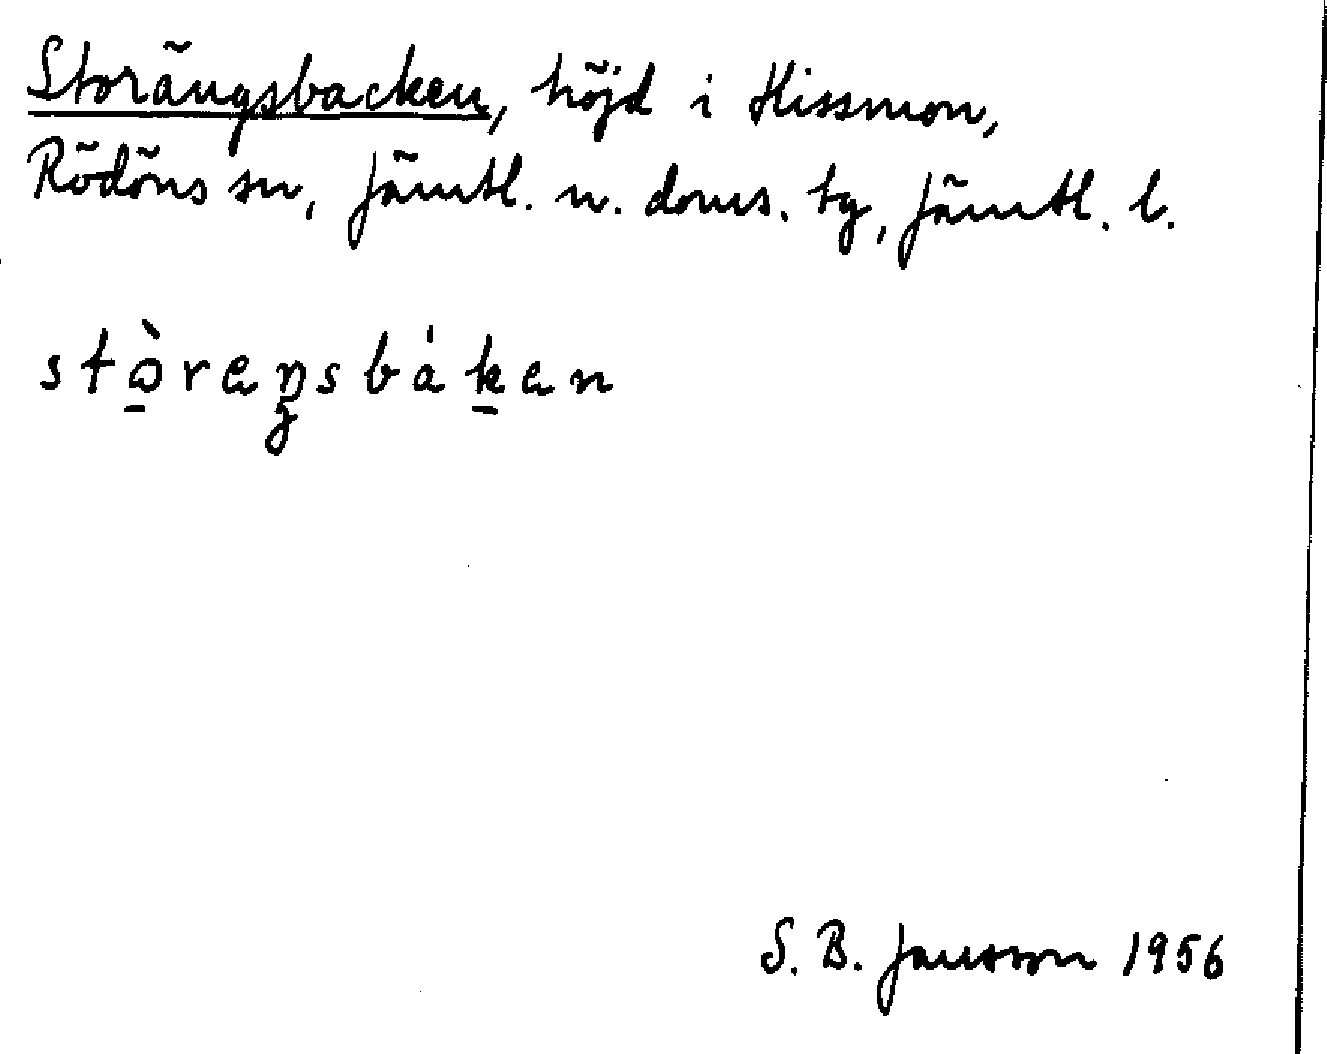 Storängsbacken, höjd i Hissmon,
Rödöns sn, Jämtl. n. doms. tg, Jämtl. l.
stò̠reŋsbák̠en
S. B. Jansson 1956